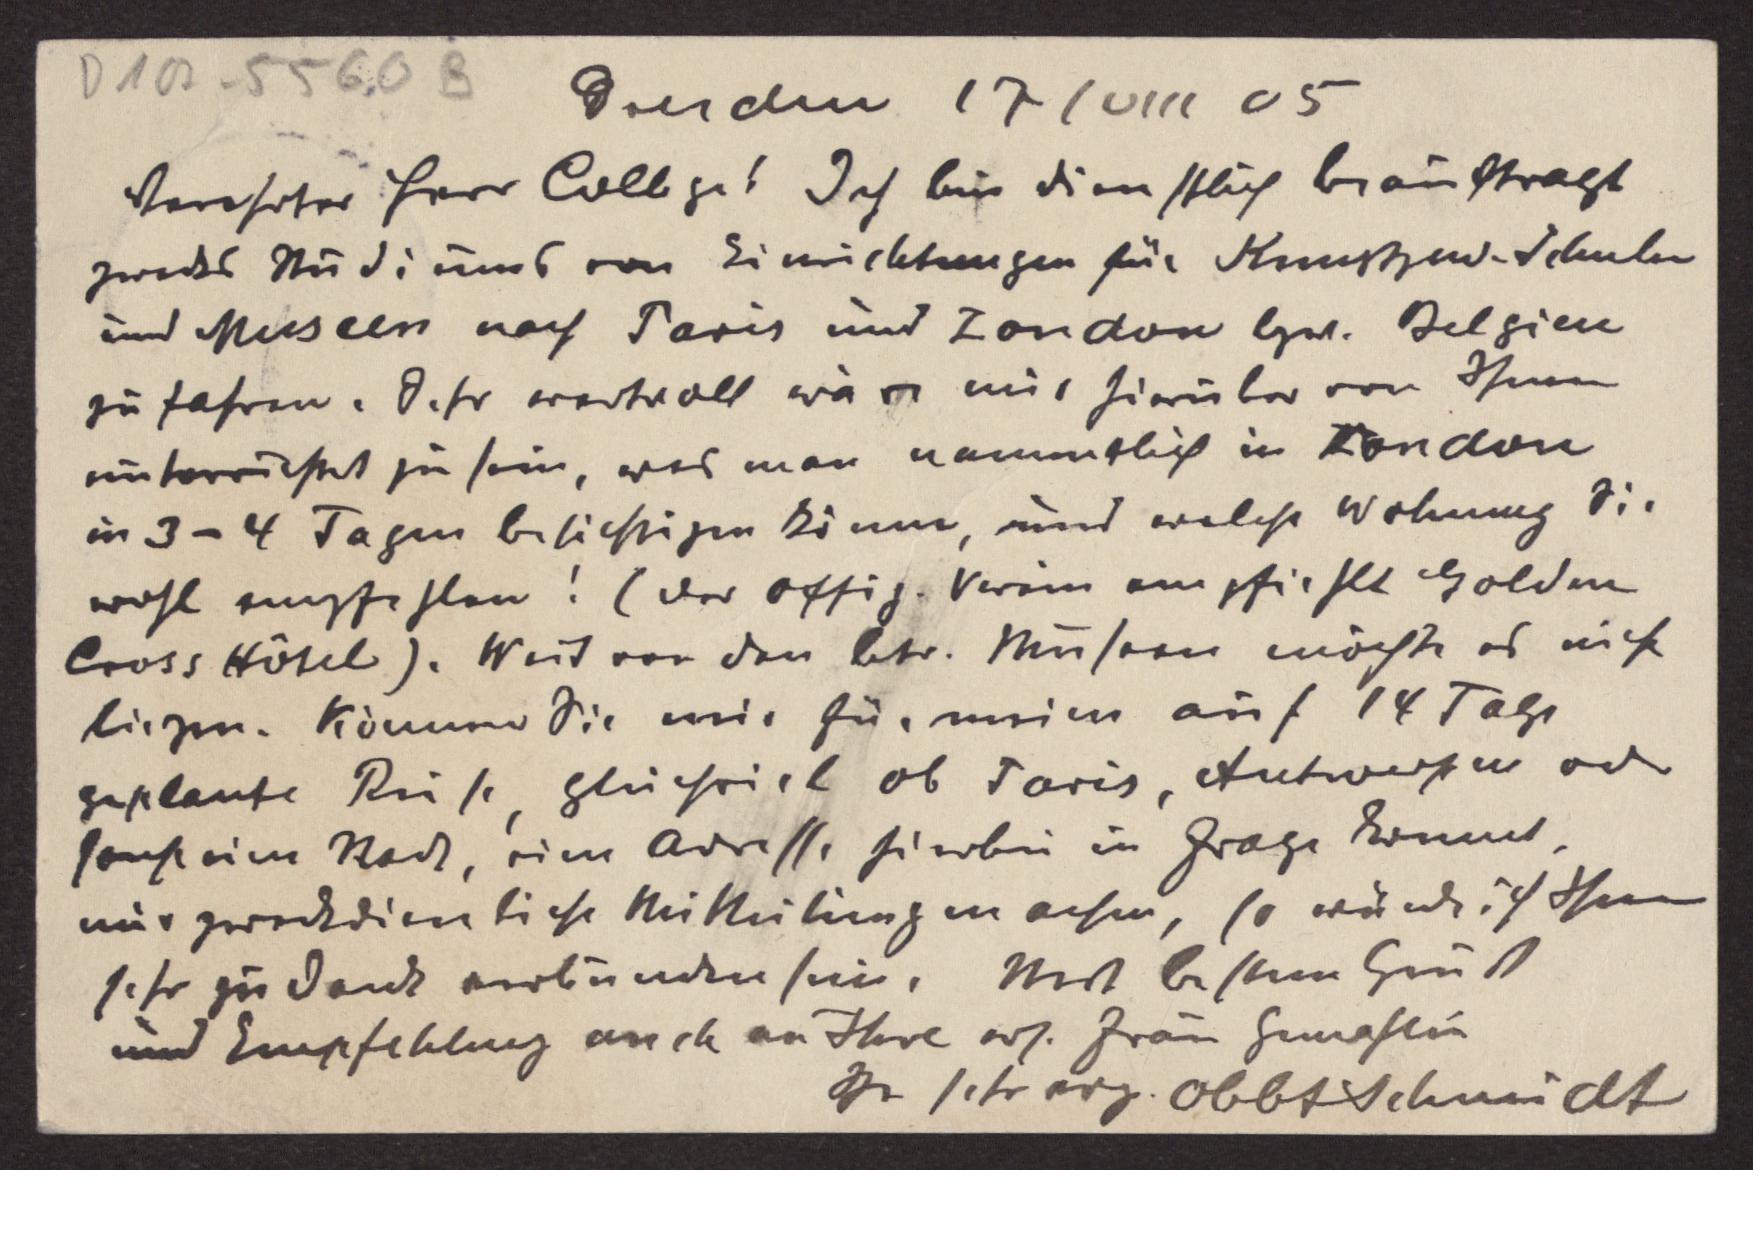 D 102-5560 B
Dresden 17/VIII 05
Verehrter Herr College! Ich bin dienstlich beauftragt
zwecks Studiums von Einrichtungen für Kunstgew. Schulen
und Museen nach Paris und London bzw. Belgien
zu fahren. Sehr wertvoll wäre mir hierüber von Ihnen
unterrichtet zu sein, was man namentlich in London
in 3-4 Tagen besichtigen könne, und welche Wohnung Sie
wohl empfehlen! (der Offiz. Verein empfiehlt Golden
Cross Hôtel). Weit von den betr. Museen möchte es nicht
liegen. Können Sie mir für meine auf 14 Tage
geplante Reise, gleichviel ob Paris, Antwerpen oder
sonst eine Stadt, eine Adresse hierbei in Frage kommt,
mir zweckdienliche Mitteilung machen, so würde ich Ihnen
sehr zu Dank verbunden sein. Mit bestem Gruß
und Empfehlung auch an Ihre Frau Gemahlin
Ihr sehr erg. Schmidt